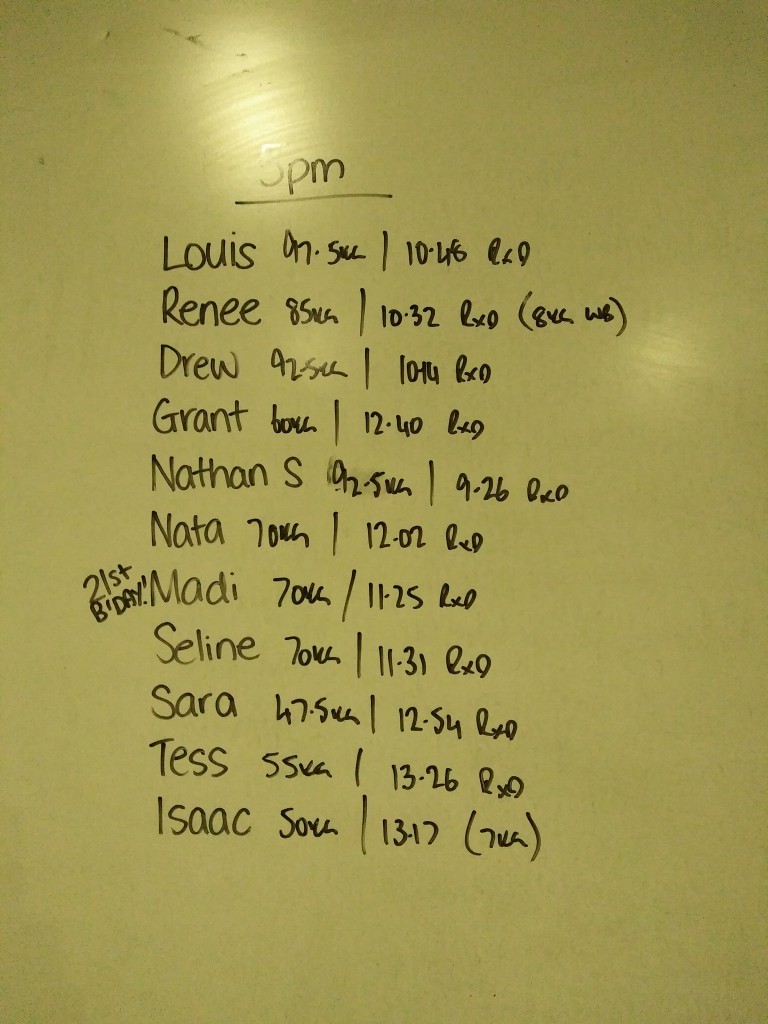 5pm
Louis 97.5KG | 10.48 RxD
Renee 85KG | 10.32 RxD (8KG WB)
Drew 92.5KG | 10.14 RxD
Grant 60KG | 12.40 RxD
Nathan S 92.5KG | 9.26 RxD
Nata 70KG | 12.02 RxD
21st B'DAY! Madi 70KG / 11.25 RxD
Seline 70KG | 11.31 RxD
Sara 47.5KG | 12.54 RxD
Tess 55KG | 13.26 RxD
Isaac 50KG | 13.17 (7KG)